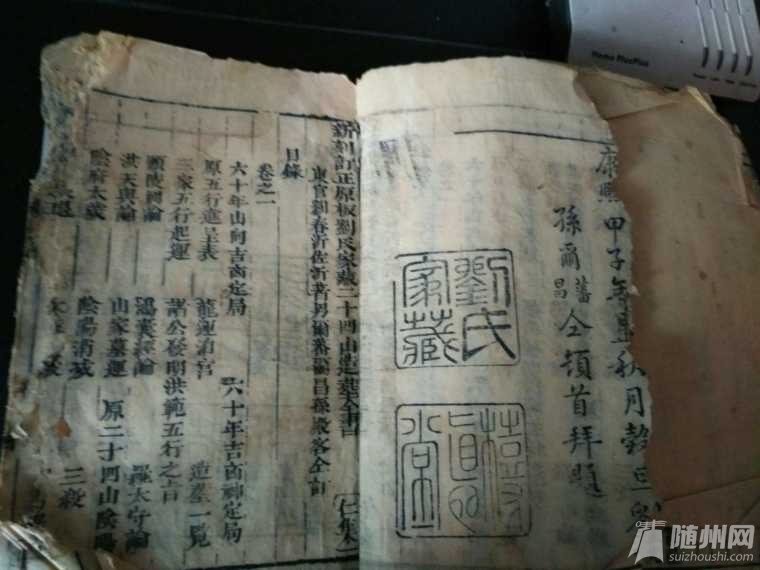 康熙甲子年孟秋月穀旦
孫爾蕃昌仝頓首拜題
劉氏家藏
新刻訂正原板劉氏家藏二十四山造葬全書 仁集
東官劉春沂佐沂著男爾蕃爾昌孫殿客仝訂
目錄
卷之一
六十年山向吉凶定局 六十年吉凶神定局
原五行進呈表 龍運泊宮 造葬一覽
三家五行起運 諸公發明洪範五行之旨
羅太守論
洪天與論 山家墓運 原二十四山陰陽
陰府太歲 陰陽消滅 三殺
Home PlusPlus
随州网
suizhoushi.com